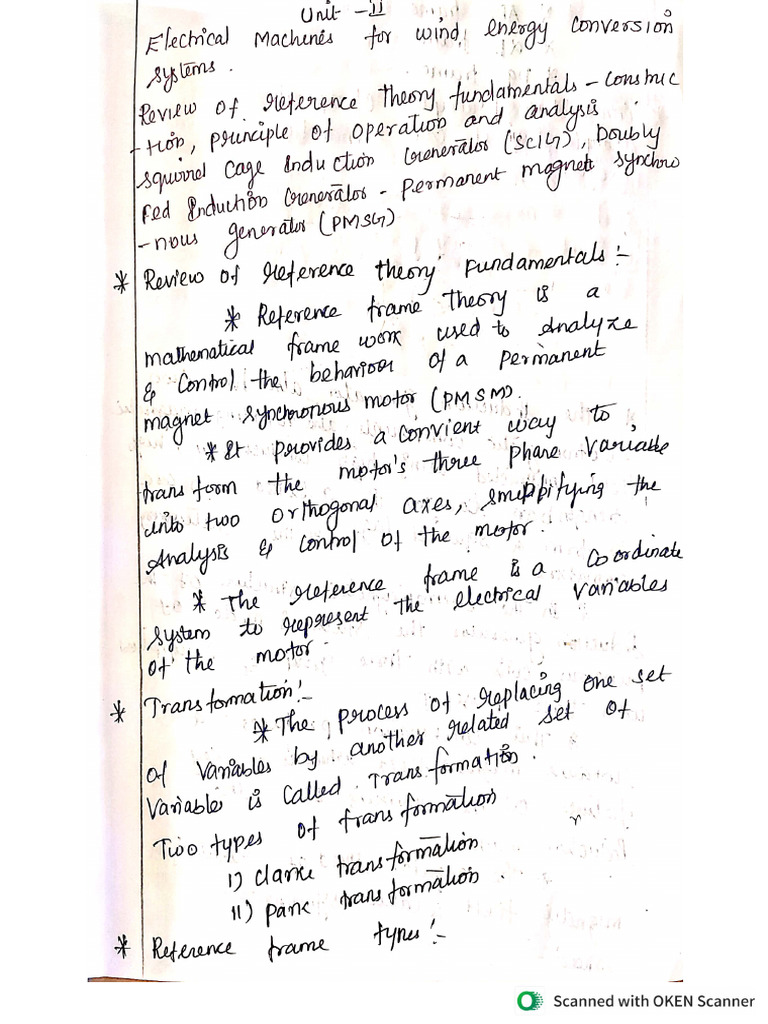 Unit - II
Electrical Machines for wind energy conversion
systems.
Review of reference Theory fundamentals - construc
- tion, principle of operation and analysis
squirrel cage Induction Generator (SCIG), Doubly
Fed Induction Generator - Permanent magnet synchro
- nous generator (PMSG)
* Review of reference theory Fundamentals :-
* Reference frame theory is a
mathematical frame work used to Analyze
& control the behaviour of a permanent
magnet synchronous motor (PMSM).
* It provides a convient way to,
trans form the motor's three phase variable
into two orthogonal axes, simplifying the
Analysis & control of the motor.
* The reference frame is a coordinate
system to represent the electrical variables
of the motor.
* Transformation :-
* The process of replacing one set
of variables by another related set of
variable is called Transformation.
Two types of transformation
i) clarke transformation
ii) park transformation.
* Reference frame types :-
Scanned with OKEN Scanner